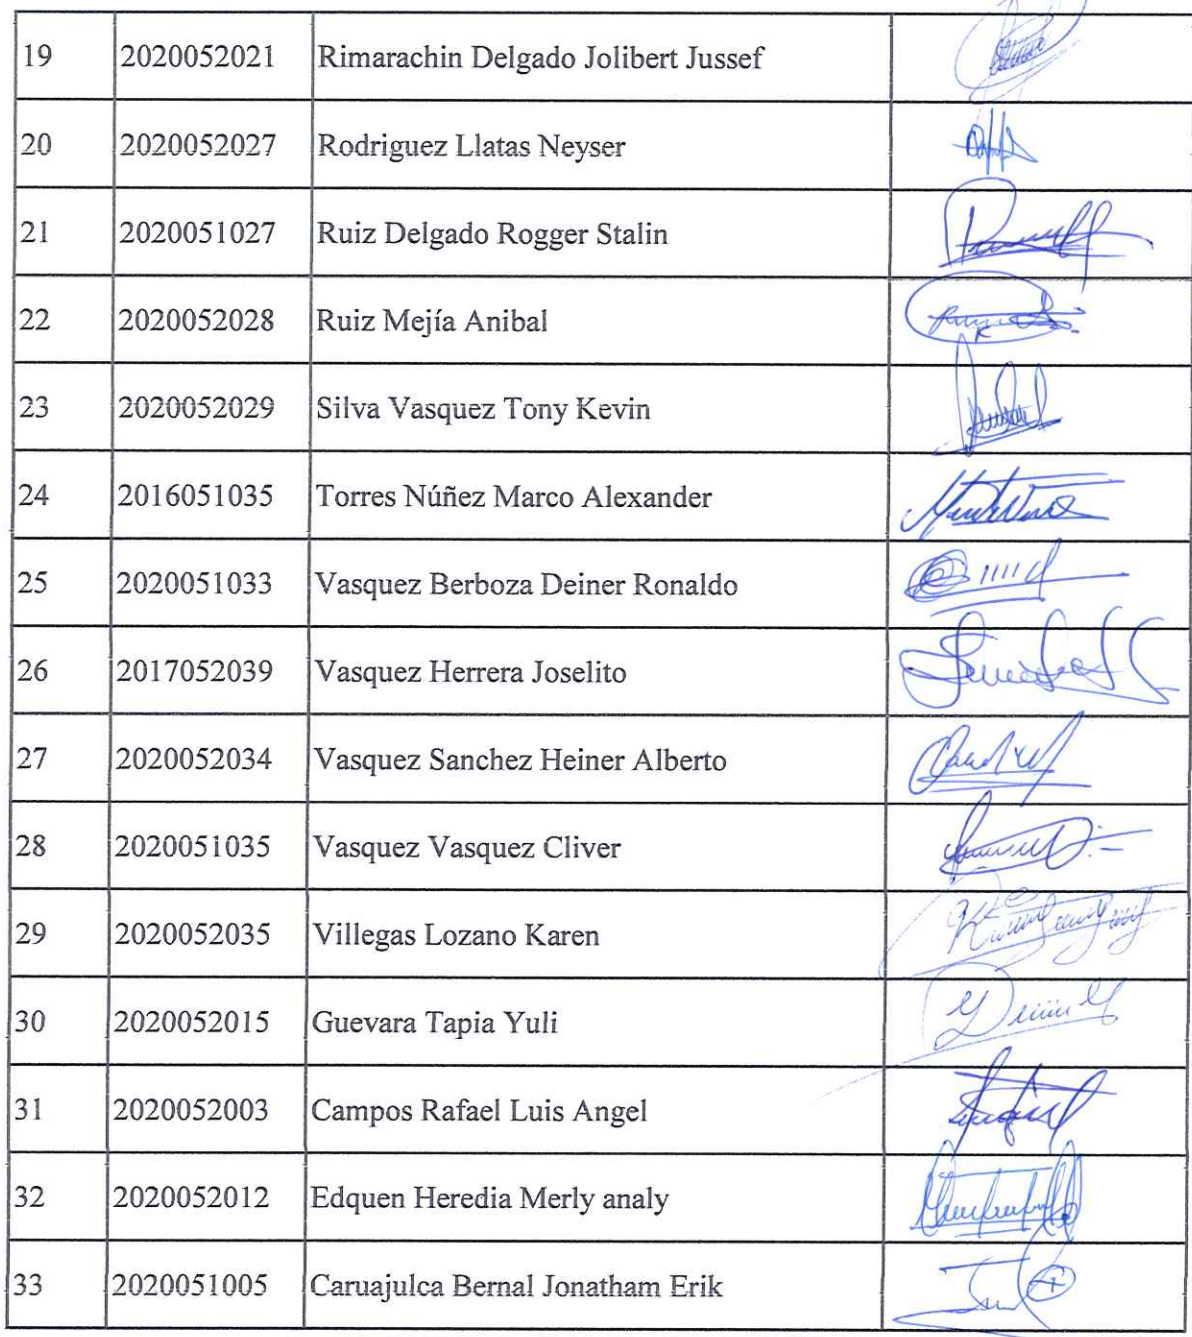 19 2020052021 Rimarachin Delgado Jolibert Jussef
20 2020052027 Rodriguez Llatas Neyser
21 2020051027 Ruiz Delgado Rogger Stalin
22 2020052028 Ruiz Mejía Anibal
23 2020052029 Silva Vasquez Tony Kevin
24 2016051035 Torres Núñez Marco Alexander
25 2020051033 Vasquez Berboza Deiner Ronaldo
26 2017052039 Vasquez Herrera Joselito
27 2020052034 Vasquez Sanchez Heiner Alberto
28 2020051035 Vasquez Vasquez Cliver
29 2020052035 Villegas Lozano Karen
30 2020052015 Guevara Tapia Yuli
31 2020052003 Campos Rafael Luis Angel
32 2020052012 Edquen Heredia Merly analy
33 2020051005 Caruajulca Bernal Jonatham Erik